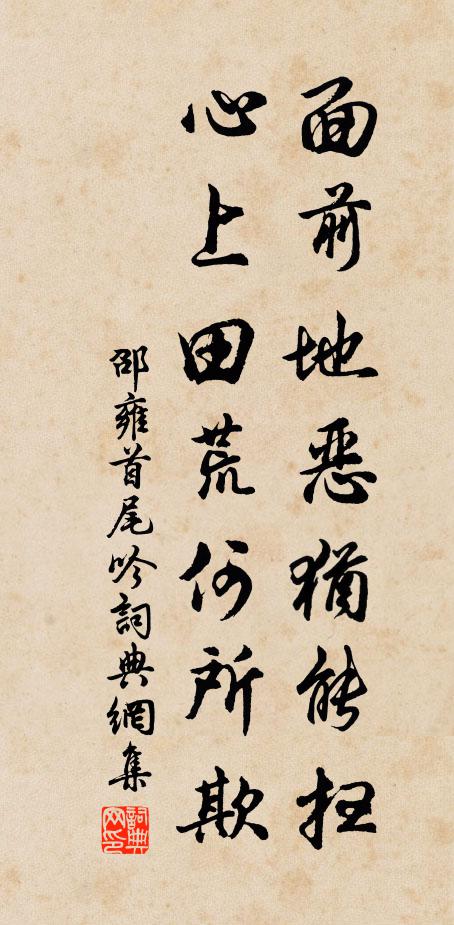 面前地恶猶能扫
心上田荒何所欺
邵雍首尾吟詞典網集
詞典網印